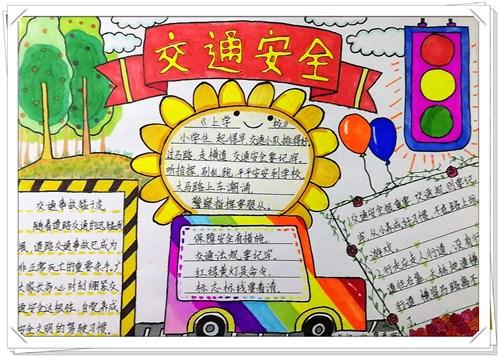 交通安全
《上学 校》
小学生 起得早 交通小队排得好
过马路 走横道 交通安全要记牢。
听指挥,别乱跑,平平安安到学校。
大马路上车潮涌,
警察指挥要服从。
保障安全有措施,
交通法规要记牢,
红绿黄灯是命令,
标志标线要看清。
交通事故猛于虎
随着道路交通的迅猛发
展,道路交通事故已成为
非正常死亡的重要杀手,广
大家长务必时刻绷紧交
通安全这根弦,自觉养成
安全文明的驾驶习惯。
1、交通安全很重要 交通规则要记
牢 从小养成好习惯 不在路上玩
游戏。
行走应走人行道 没有
道往右靠 天桥地道横
行道 横穿马路离不